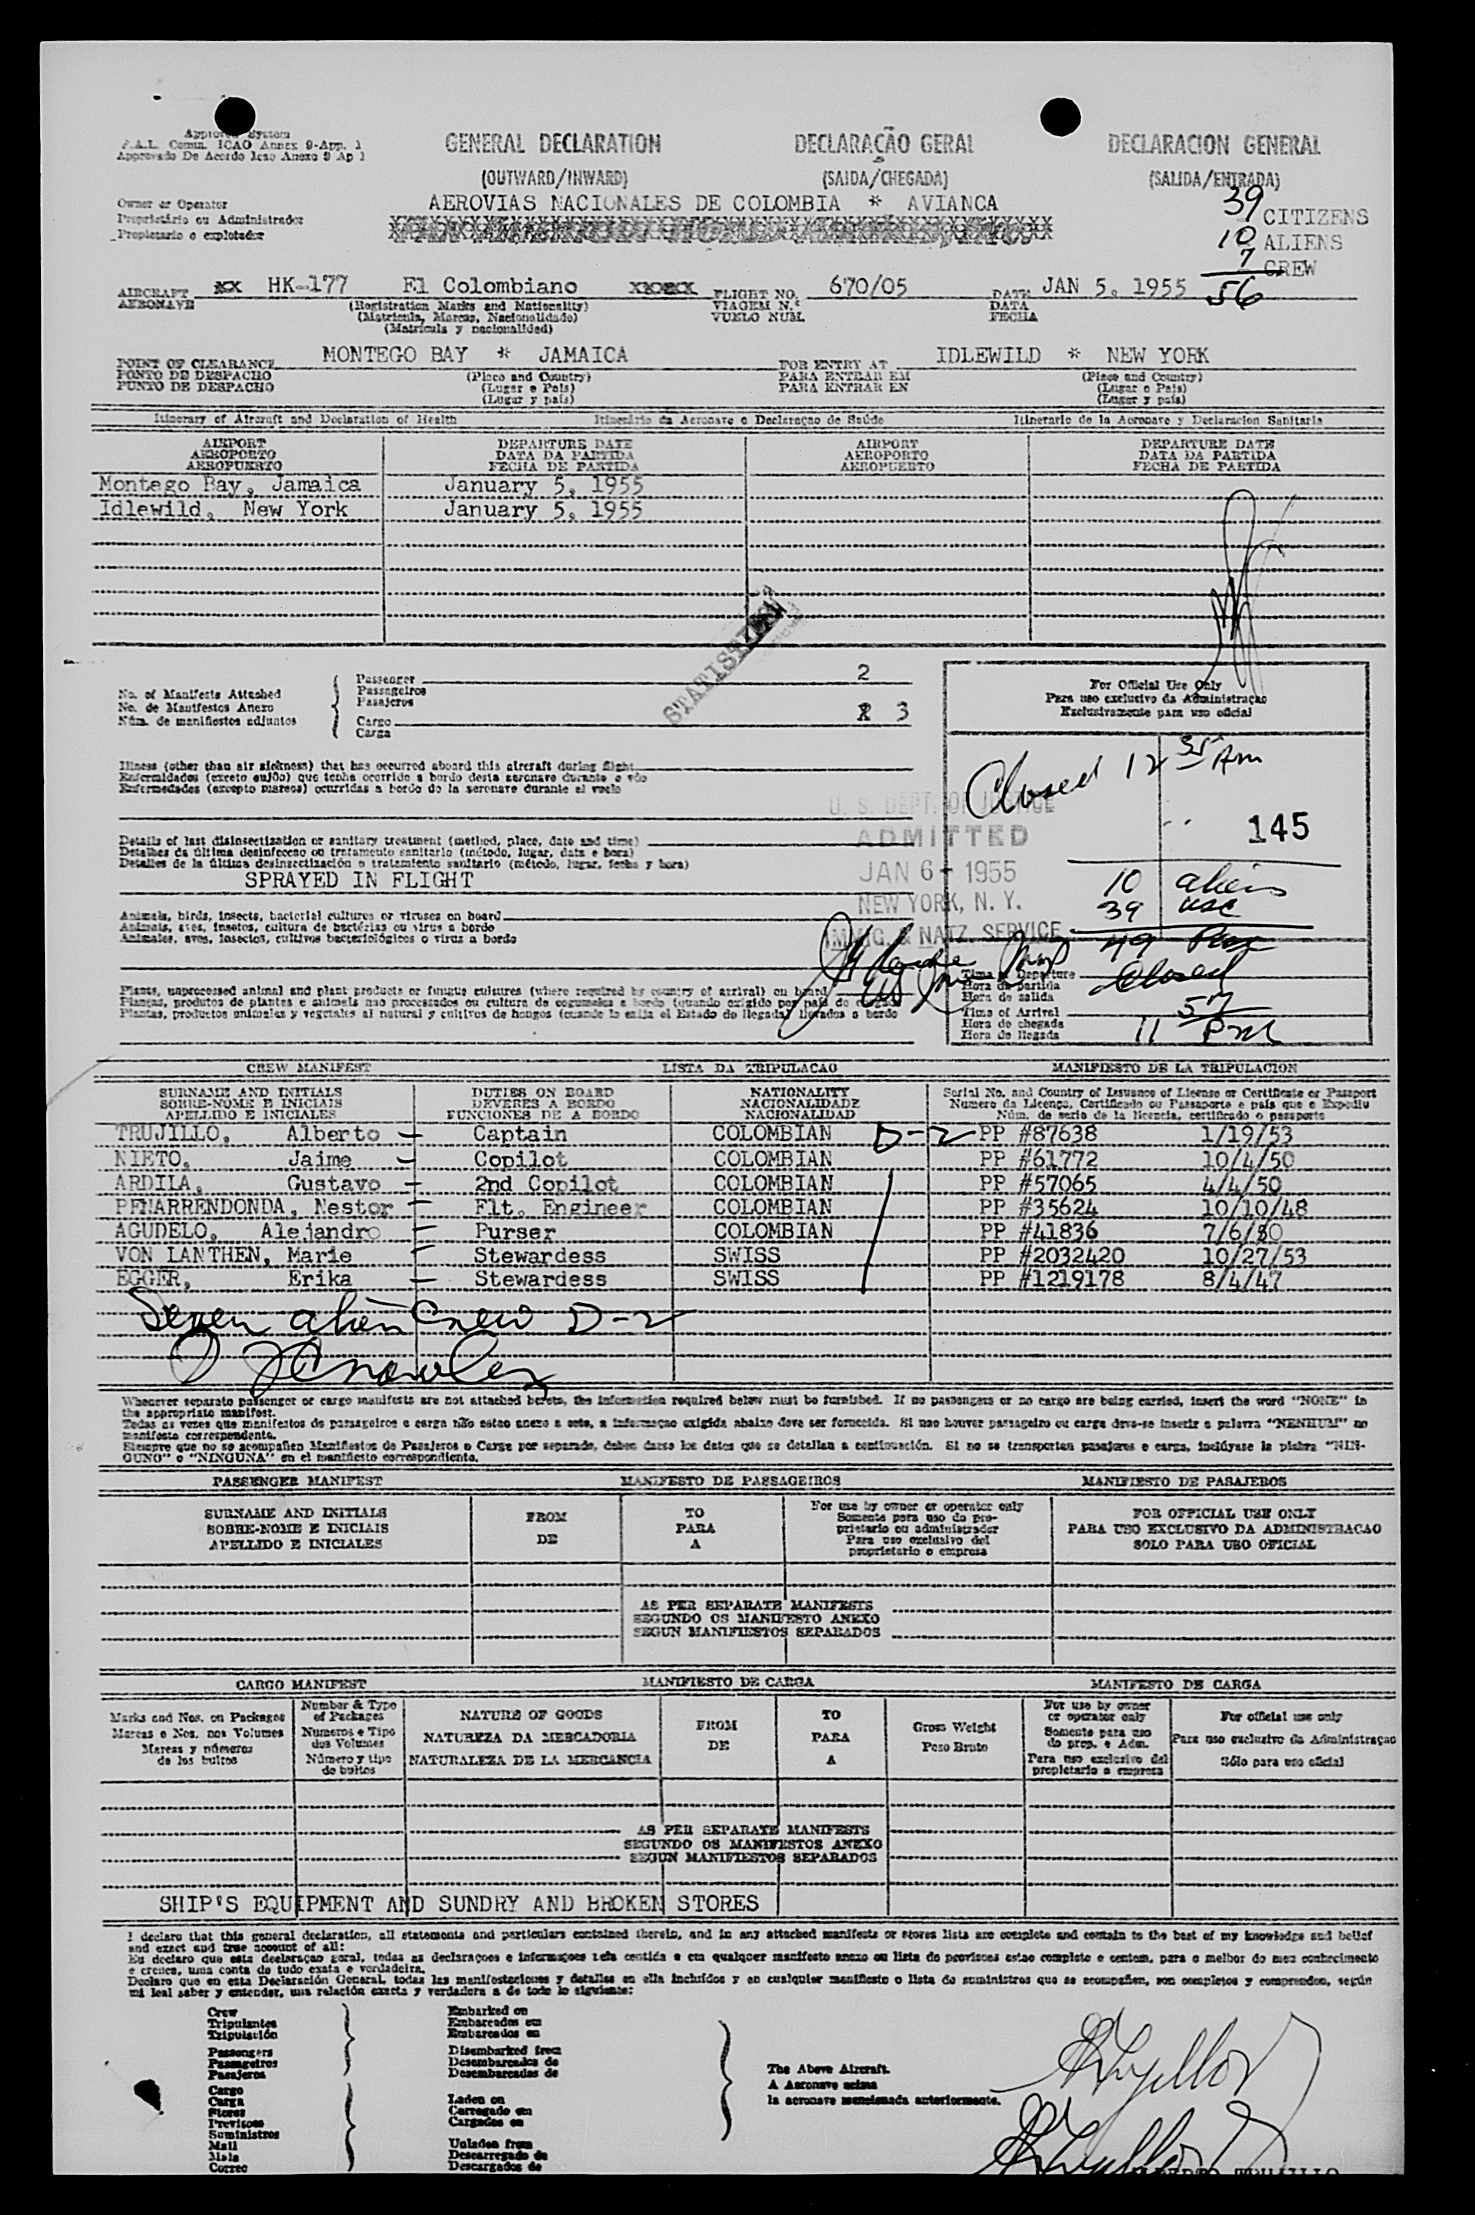 Approved System
F.A.L. Comm. ICAO Annex 9-App. 1
Approvado De Acordo Icao Anexo 9 Ap 1
GENERAL DECLARATION DECLARAÇÃO GERAL DECLARACION GENERAL
(OUTWARD/INWARD) (SAIDA/CHEGADA) (SALIDA/ENTRADA)
Owner or Operator
Proprietário ou Administrador
Propietario o explotador
AEROVIAS NACIONALES DE COLOMBIA * AVIANCA
39 CITIZENS
10 ALIENS
7 CREW
56
AIRCRAFT HK-177 El Colombiano FLIGHT NO. 670/05 DATE JAN 5, 1955
AERONAVE (Registration Marks and Nationality) VIAGEM N.º DATA
(Matricula, Marcas, Nacionalidade) VUELO NUM. FECHA
(Matrícula y nacionalidad)
POINT OF CLEARANCE MONTEGO BAY * JAMAICA FOR ENTRY AT IDLEWILD * NEW YORK
PONTO DE DESPACHO (Place and Country) PARA ENTRAR EM (Place and Country)
PUNTO DE DESPACHO (Lugar e Pais) PARA ENTRAR EN (Lugar e Pais)
(Lugar y país) (Lugar y país)
Itinerary of Aircraft and Declaration of Health Itinerário da Aeronave e Declaraçao de Saúde Itinerario de la Aeronave y Declaracion Sanitaria
AIRPORT DEPARTURE DATE AIRPORT DEPARTURE DATE
AEROPORTO DATA DA PARTIDA AEROPORTO DATA DA PARTIDA
AEROPUERTO FECHA DE PARTIDA AEROPUERTO FECHA DE PARTIDA
Montego Bay, Jamaica January 5, 1955
Idlewild, New York January 5, 1955
STATISTICAL
No. of Manifests Attached
No. de Manifestos Anexo
Núm. de manifiestos adjuntos
Passenger 2
Passageiros
Pasajeros
Cargo 3
Carga
For Official Use Only
Para uso exclusivo da Administraçao
Exclusivamente para uso oficial
Illness (other than air sickness) that has occurred aboard this aircraft during flight
Enfermidades (exceto enjôo) que tenha ocorrido a bordo desta aeronave durante o vôo
Enfermedades (excepto mareos) ocurridas a bordo de la aeronave durante el vuelo
Closed 12 35 Am
145
10 aliens
39 usc
49 Pax
Closed
U. S. DEPT. OF JUSTICE
ADMITTED
JAN 6 - 1955
NEW YORK, N. Y.
IMMIG. & NATZ. SERVICE
Details of last disinsectization or sanitary treatment (method, place, date and time)
Detalhes da última desinfeccao ou tratamento sanitario (método, lugar, data e hora)
Detalles de la última desinsectización o tratamiento sanitario (método, lugar, fecha y hora)
SPRAYED IN FLIGHT
Animals, birds, insects, bacterial cultures or viruses on board
Animais, aves, insetos, cultura de bactérias ou virus a bordo
Animales, aves, insectos, cultivos bacteriológicos o virus a bordo
Plants, unprocessed animal and plant products or fungus cultures (where required by country of arrival) on board
Plantas, produtos de plantas e animais nao processados ou cultura de cogumelos a bordo (quando exigido por pais de
Plantas, productos animales y vegetales al natural y cultivos de hongos (cuando lo exija el Estado de llegada) llevados a bordo
Time of Departure
Hora da partida
Hora de salida
Time of Arrival 57
Hora da chegada 11 Pm
Hora de llegada
CREW MANIFEST LISTA DA TRIPULACAO MANIFIESTO DE LA TRIPULACION
SURNAME AND INITIALS DUTIES ON BOARD NATIONALITY Serial No. and Country of Issuance of License or Certificate or Passport
SOBRE-NOME E INICIAIS DEVERES A BORDO NACIONALIDADE Numero da Licença, Certificado ou Passaporte e país que o Expediu
APELLIDO E INICIALES FUNCIONES DE A BORDO NACIONALIDAD Núm. de serie de la licencia, certificado o pasaporte
TRUJILLO, Alberto — Captain COLOMBIAN D-2 PP #87638 1/19/53
NIETO, Jaime — Copilot COLOMBIAN PP #61772 10/4/50
ARDILA, Gustavo — 2nd Copilot COLOMBIAN PP #57065 4/4/50
PENARRENDONDA, Nestor — Flt. Engineer COLOMBIAN PP #35624 10/10/48
AGUDELO, Alejandro — Purser COLOMBIAN PP #41836 7/6/50
VON LANTHEN, Marie — Stewardess SWISS PP #2032420 10/27/53
EGGER, Erika — Stewardess SWISS PP #1219178 8/4/47
Seven alien Crew D-2
Whenever separate passenger or cargo manifests are not attached hereto, the information required below must be furnished. If no passengers or no cargo are being carried, insert the word "NONE" in
the appropriate manifest.
Todas as vezes que manifestos de passageiros e carga não estao anexo a este, a informaçao exigida abaixo deve ser fornecida. Si nao houver passageiro ou carga deve-se inserir a palavra "NENHUM" no
manifesto correspondente.
Siempre que no se acompañen Manifiestos de Pasajeros o Carga por separado, deben darse los datos que se detallan a continuación. Si no se transportan pasajeros o carga, inclúyase la plabra "NIN-
GUNO" o "NINGUNA" en el manifiesto correspondiente.
PASSENGER MANIFEST MANIFESTO DE PASSAGEIROS MANIFIESTO DE PASAJEROS
SURNAME AND INITIALS FROM TO For use by owner or operator only FOR OFFICIAL USE ONLY
SOBRE-NOME E INICIAIS DE PARA Somente para uso do pro- PARA USO EXCLUSIVO DA ADMINISTRACAO
APELLIDO E INICIALES A prietario ou administrador SOLO PARA USO OFICIAL
Para uso exclusivo del
propietario o empresa
AS PER SEPARATE MANIFESTS
SEGUNDO OS MANIFESTO ANEXO
SEGUN MANIFIESTOS SEPARADOS
CARGO MANIFEST MANIFIESTO DE CARGA MANIFESTO DE CARGA
Marks and Nos. on Packages Number & Type of Packages NATURE OF GOODS FROM TO Gross Weight For use by owner or operator only For official use only
Marcas e Nos. nos Volumes Numeros e Tipo dos Volumes NATUREZA DA MERCADORIA DE PARA Peso Bruto Somente para uso do prop. e Adm. Para uso exclusivo da Administraçao
Marcas y números de los bultos Número y tipo de bultos NATURALEZA DE LA MERCANCIA A Para uso exclusivo del propietario o empresa Sólo para uso oficial
AS PER SEPARATE MANIFESTS
SEGUNDO OS MANIFESTOS ANEXO
SEGUN MANIFIESTOS SEPARADOS
SHIP'S EQUIPMENT AND SUNDRY AND BROKEN STORES
I declare that this general declaration, all statements and particulars contained therein, and in any attached manifests or stores lists are complete and contain to the best of my knowledge and belief
and exact and true account of all:
Eu declaro que esta declaraçao geral, todas as declaraçoes e informaçoes nela contida e em qualquer manifesto anexo ou lista de provisoes estao completo e contem, para o melhor do meu conhecimento
e crenca, uma conta de tudo exata e verdadeira.
Declaro que en esta Declaración General, todas las manifestaciones y detalles en ella incluídos y en cualquier manifiesto o lista de suministros que se acompañen, son completos y comprenden, según
mi leal saber y entender, una relación exacta y verdadera a de todo lo siguiente:
Crew Embarked on
Tripulantes Embarcados em
Tripulación Embarcados en
Passengers Disembarked from
Passageiros Desembarcados de
Pasajeros Desembarcados de
The Above Aircraft.
A Aeronave acima
la aeronave mencionada anteriormente.
Cargo
Carga Laden on
Stores Carregado em
Previsoes Cargados en
Suministros
Mail Unladen from
Mala Descarregado de
Correo Descargados de
ATrujillo
ATrujillo
ALBERTO TRUJILLO